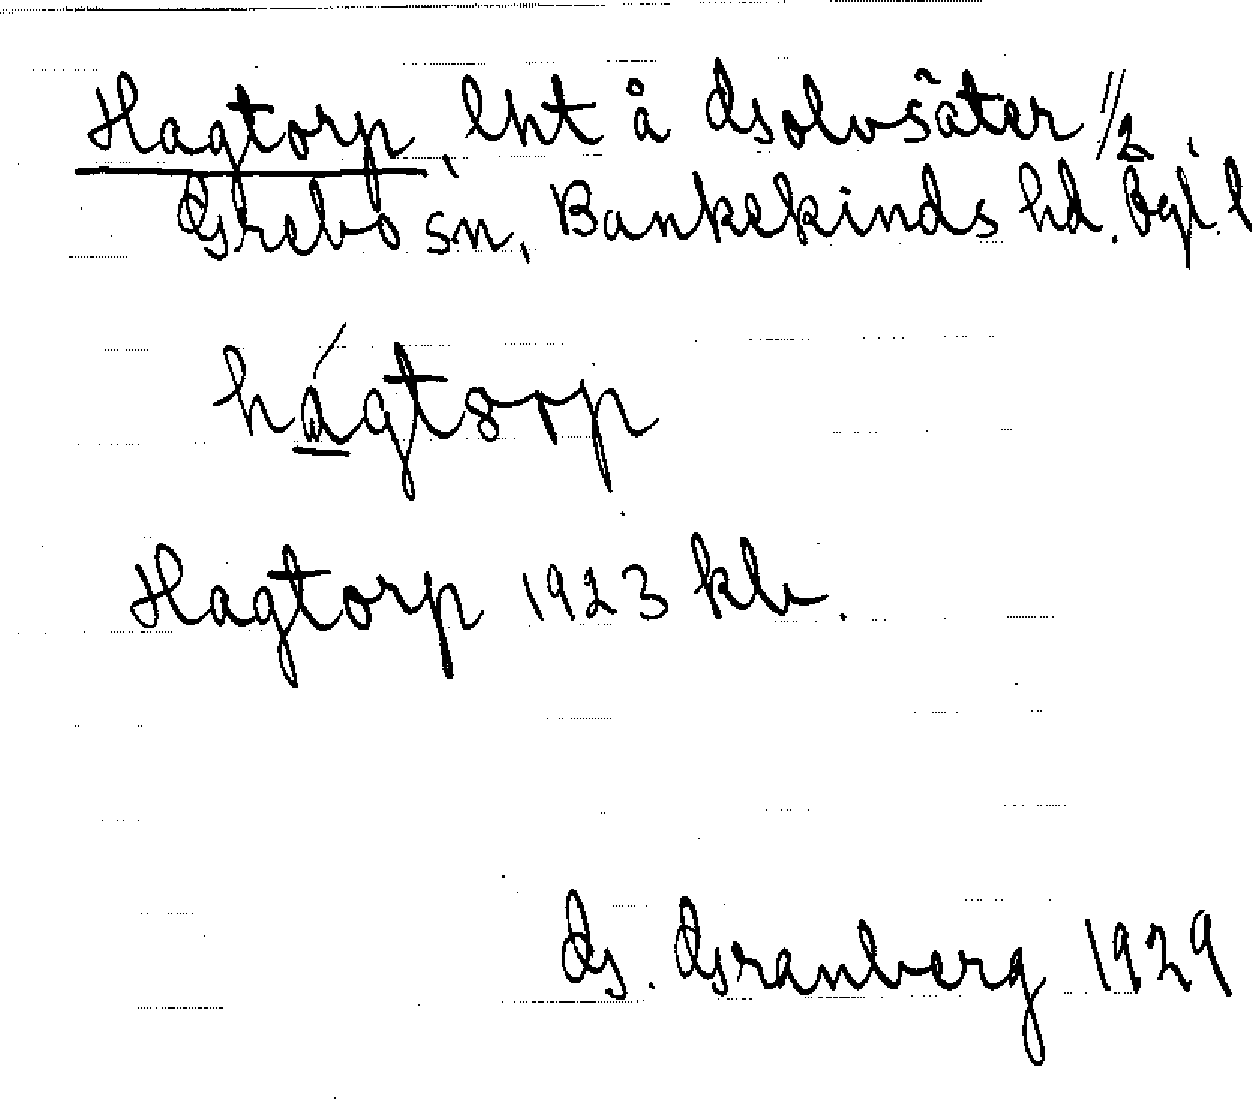 Hagtorp, lht å Golvsäter 1/2
Grebo sn, Bankekinds hd. Ögl. l
hágtorp
Hagtorp 1923 kb.
G. Granberg 1929